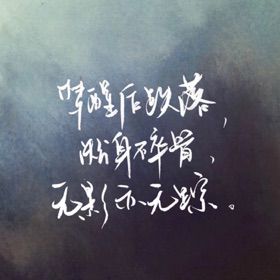 梦醒后跌落，
粉身碎骨，
无影亦无踪。